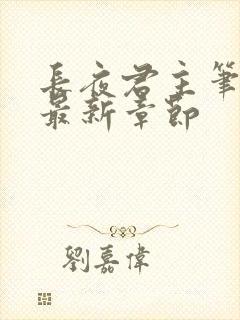 長夜君主筆
最新章節
劉嘉偉